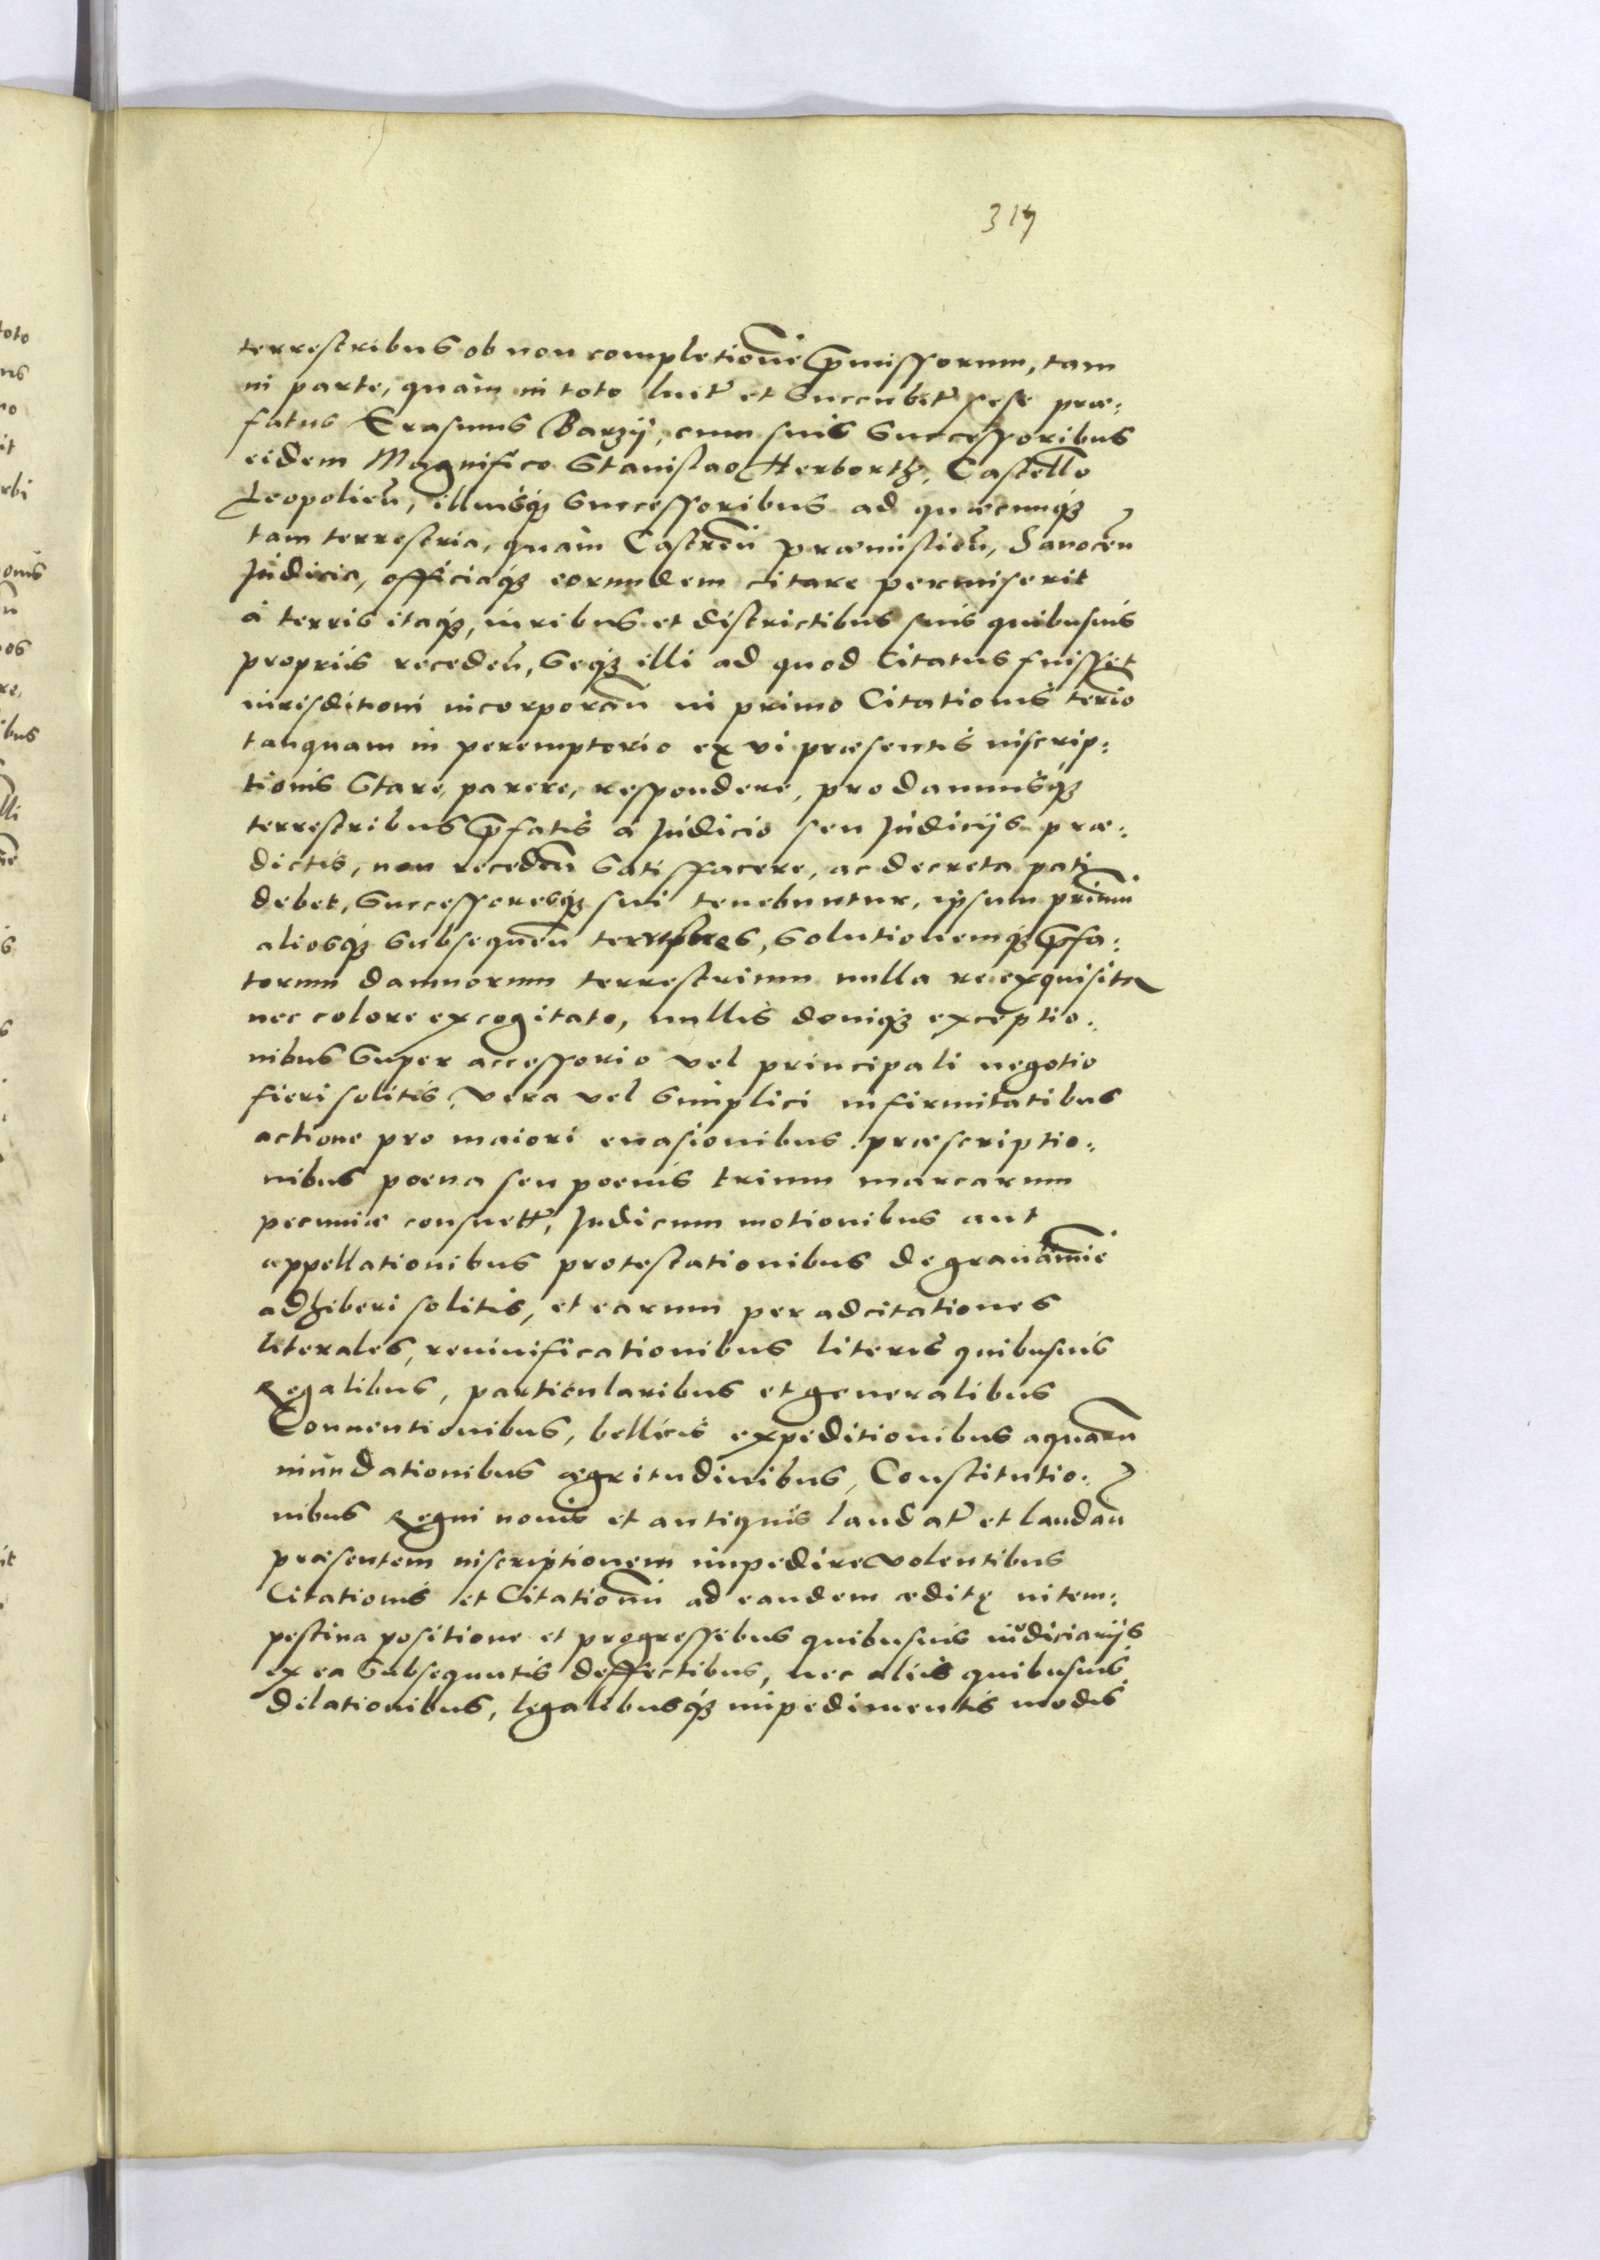 319
terrestribus ob non completionē p̄missorum, tam
in parte, quàm in toto luit͛ et succubit͛ sese præ:
fatus Erasmus Barzÿ, cum suis successoribus
eidem Magnifico Stanislao Herborth, Castello
Leopolień, illiusq́ȝ successoribus ad quæcunq́ȝ
tam terrestria, quàm Castreń præmislień, Sanoceń
Judicia, officiaq́ȝ eorumdem citare permiserit
à terris itaq́ȝ, iuribus et districtibus suis quibusuis
propriis recedeń, seq́ȝ illi ad quod Citatus fuisset
iurisditioni incorporań in primo Citationis termio
tanquam in peremptorio ex vi præsentis inscrip:
tionis stare, parere, respondere, pro damnisq́ȝ
terrestribus p̄fatis à Judicio seu Judicijs præ:
dictis, non recedeń satisffacere, ac decreta pati
debet, successoresq́ȝ sui tenebuntur, ipsum primū
aliosq́ȝ subsequeń terrestres, solutionemq́ȝ p̄fa:
torum damnorum terrestrium nulla re exquisita
nec colore excogitato, nullis deniq́ȝ exceptio:
nibus super accessorio vel principali negotio
fieri solitis, vera vel simplici infirmitatibus
actione pro maiori euasionibus præscriptio:
nibus poena seu poenis trium marcarum
pecuniæ consuett͛, Judicum motionibus aut
appellationibus protestationibus de grauamīe
adhiberi solitis, et earum per adcitationes
literales, reuiuificationibus literis quibusuis
Regalibus, particularibus et generalibus
Conuentionibus, bellicis expeditionibus aquarū
inundationibus ægritudinibus, Constitutio:
nibus Regni nouis et antiquis laudat͛ et laudań
præsentem inscriptionem impedire volentibus
Citationis et Citationū ad eandem æditę intem:
pestiua positione et progressibus quibusuis iudiciarijs
ex ea subsequutis deffectibus, nec aliis quibusuis
dilationibus, legalibusq́ȝ impedimentis modis